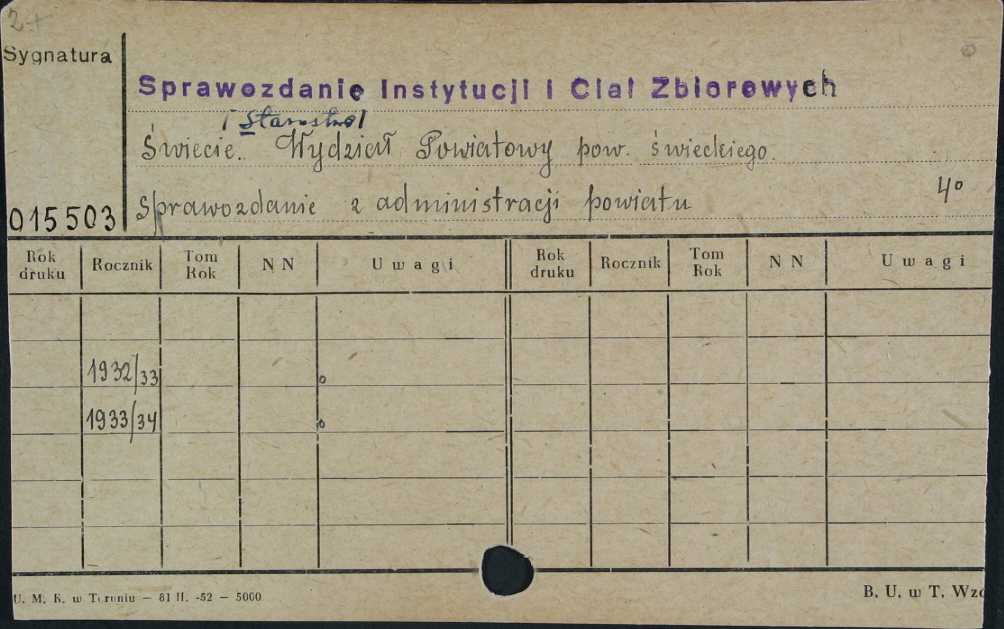 2+
Sygnatura
Sprawozdanie Instytucji i Ciał Zbiorowych
/Starostwo/
Świecie. Wydział Powiatowy pow. świeckiego.
Sprawozdanie z administracji powiatu
4º
015503
Rok druku Rocznik Tom Rok N N Uwagi Rok druku Rocznik Tom Rok N N Uwagi
1932/33 o
1933/34 o
U. M. K. w Toruniu — 81 II. -52 — 5000
B. U. w T. Wzó